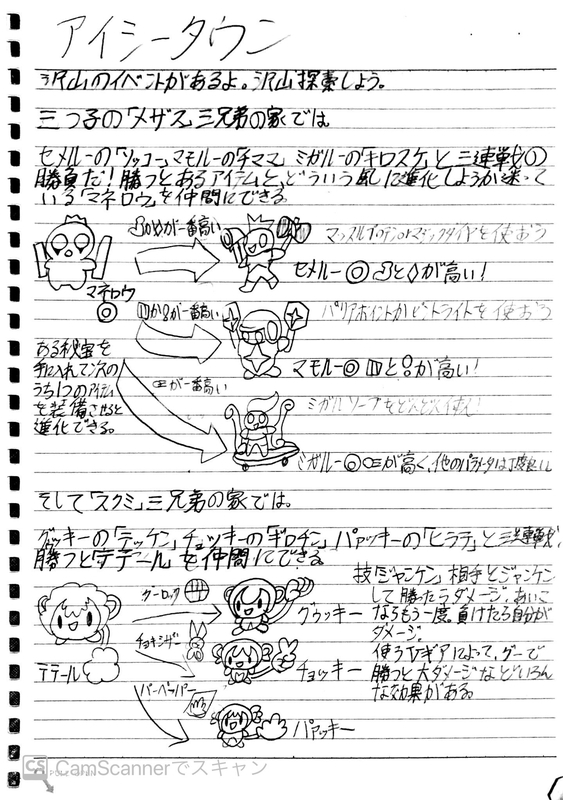 アイシータウン
沢山のイベントがあるよ。沢山探索しよう。
三つ子の「メザス」三兄弟の家では
セメルーの「ソッコー」マモルーの「チママ」ミガルーの「キロスケ」と三連戦の
勝負だ!勝つとあるアイテムと、どういう風に進化しようか迷って
いる「マネロウ」を仲間にできる。
が一番高い
マッスルプロテンかマジックダイヤを使おう
セメルー
と
が高い!
マネロウ
か
が一番高い
バリアポイントかビトライトを使おう
マモルー
か高い!
ある秘宝を
手に入れて次の
うち1つのアイテム
を装備させると
進化できる。
が一番高い
ミガルソープをどんどん使え!
ミガルー
が高く、他のパラメータは丁度良い
そして「スクミ」三兄弟の家では。
グッキーの「テッケン」チョッキーの「ギロチン」パァッキーの「ヒラテ」と三連戦。
勝つと「テテール」を仲間にできる
グーロック
グゥッキー
チョキシザー
チョッキー
テテール
パーペッパー
パァッキー
技「ジャンケン」相手とジャンケン
して勝ったらダメージ。あいこ
ならもう一度。負けたら自分が
ダメージ。
使うVギアによって、グーで
勝つと大ダメージなどいろん
な効果がある。
CS CamScannerでスキャン